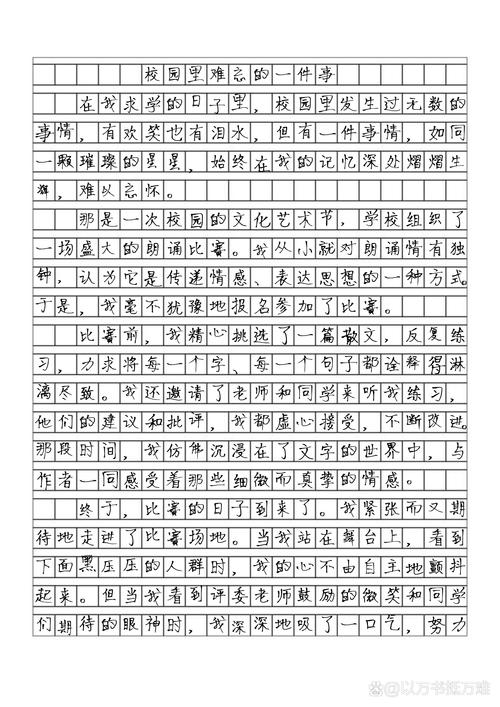 校园里难忘的一件事
在我求学的日子里，校园里发生过无数的
事情，有欢笑也有泪水，但有一件事情，如同
一颗璀璨的星星，始终在我的记忆深处熠熠生
辉，难以忘怀。
那是一次校园的文化艺术节，学校组织了
一场盛大的朗诵比赛。我从小就对朗诵情有独
钟，认为它是传递情感、表达思想的一种方式。
于是，我毫不犹豫地报名参加了比赛。
比赛前，我精心挑选了一篇散文，反复练
习，力求将每一个字、每一个句子都诠释得淋
漓尽致。我还邀请了老师和同学来听我练习，
他们的建议和批评，我都虚心接受，不断改进。
那段时间，我仿佛沉浸在了文字的世界中，与
作者一同感受着那些细微而真挚的情感。
终于，比赛的日子到来了。我紧张而又期
待地走进了比赛场地。当我站在舞台上，看到
下面黑压压的人群时，我的心不由自主地颤抖
起来。但当我看到评委老师鼓励的微笑和同学
们期待的眼神时，我深深地吸了一口气，努力
@以万书抵万难